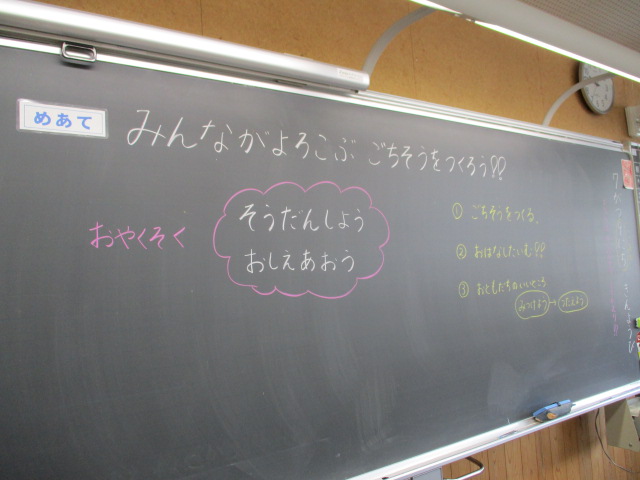 めあて
みんながよろこぶ ごちそうをつくろう!!
おやくそく
そうだんしよう
おしえあおう
① ごちそうをつくる。
② おはなしたいむ!!
③ おともだちのいいところ
みつけよう→つたえよう